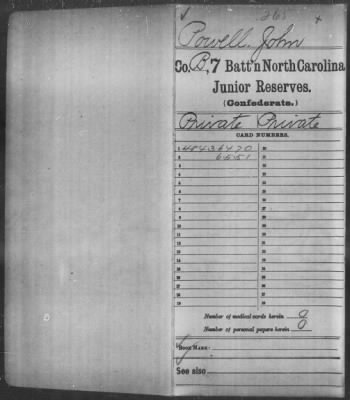 261
Powell, John
Co. B, 7 Batt'n North Carolina
Junior Reserves.
(Confederate.)
Private Private
CARD NUMBERS.
1 48436470 20
2 6551 21
3 22
4 23
5 24
6 25
7 26
8 27
9 28
10 29
11 30
12 31
13 32
14 33
15 34
16 35
17 36
18 37
19 38
Number of medical cards herein 0
Number of personal papers herein 0
BOOK MARK:
See also